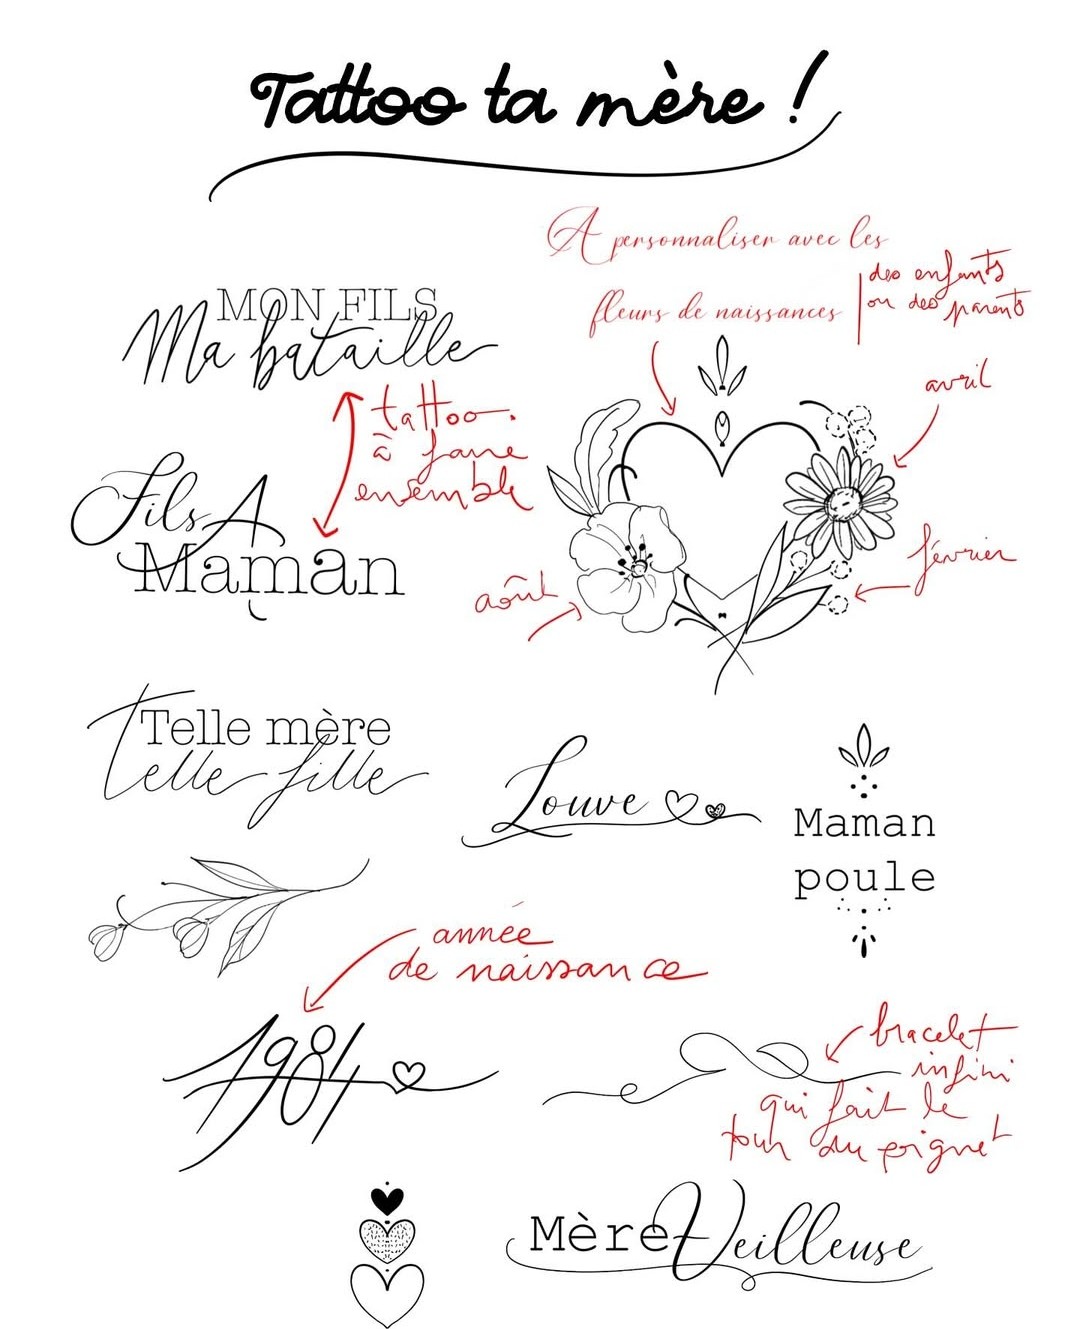 Tattoo ta mère !
A personnaliser avec les
fleurs de naissances
des enfants
ou des parents
MON FILS
Ma bataille
tattoo.
à faire
ensemble
avril
Fils A
Maman
février
août
Telle mère
telle fille
Louve
Maman
poule
année
de naissance
1984
bracelet
infini
qui fait le
tour du poignet
MèreVeilleuse